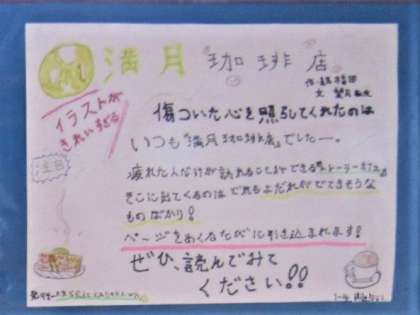 満月珈琲店
イラストが
きれいすぎる
傷ついた心を照らしてくれたのは
いつも『満月珈琲店』でした―。
疲れた人だけが訪れることができる
そこに出てくるのはどれもよだれがでてきそうな
ものばかり!
ページをめくるたびに引き込まれます!
ぜひ、読んでみて
ください!!